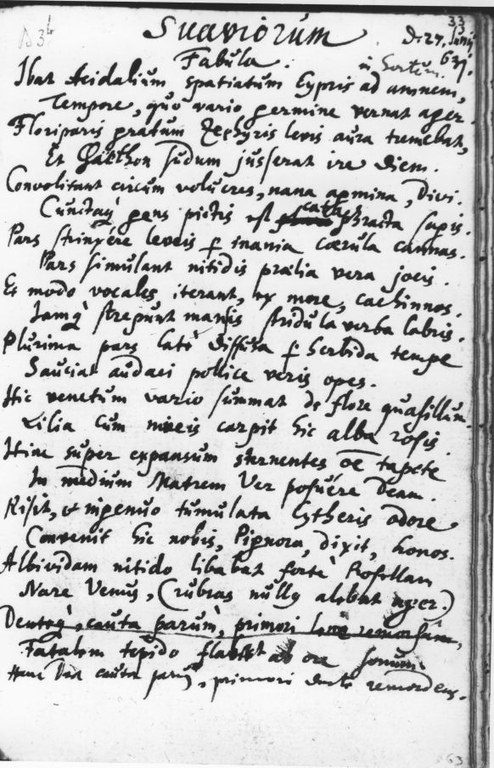 33
Suaviorum
D. 27. Junij
Fabula.
in Hortum. 631.
Ibat Acidalium spatiatum Cypris ad amnem,
Tempore, quo vario germine vernat ager.
Floriparis pratum Zephyris levis aura tremebat,
Et Phaethon sudum jusserat ire diem.
Convolitant circum volucres, nana agmina, Divi.
Cunctaq; gens pictis est pharetrata
Pars stringere leveis per inania cærula cannas.
Pars simulant nitidis prælia vera jocis.
Et modo vocales iterant, ex more, cachinnos.
Jamq; strepunt stridula verba labris.
Plurima pars latè diffusa per herbida tempe
Sauciat audaci pollice veris opes.
Hic venetum vario summat de flore quasillum
Lilia cum niveis carpit hic alba rosis.
Hinc super expansum sternentes tapete
In medium Matrem Ver posuêre Deam.
Risit, et ingenuo tumulata Cytheris odore
Convenit hic nobis, Pignora, dixit, honos.
Albividam nitido libabat fortè Rosellam
Nare Venus, (rubras nullus alebat ager.)
Denteq;, cauta parùm, primori
Fatalem tepido flabat ab ore sonum.
Hanc Dea cauta parum, primori dente remordens.
63